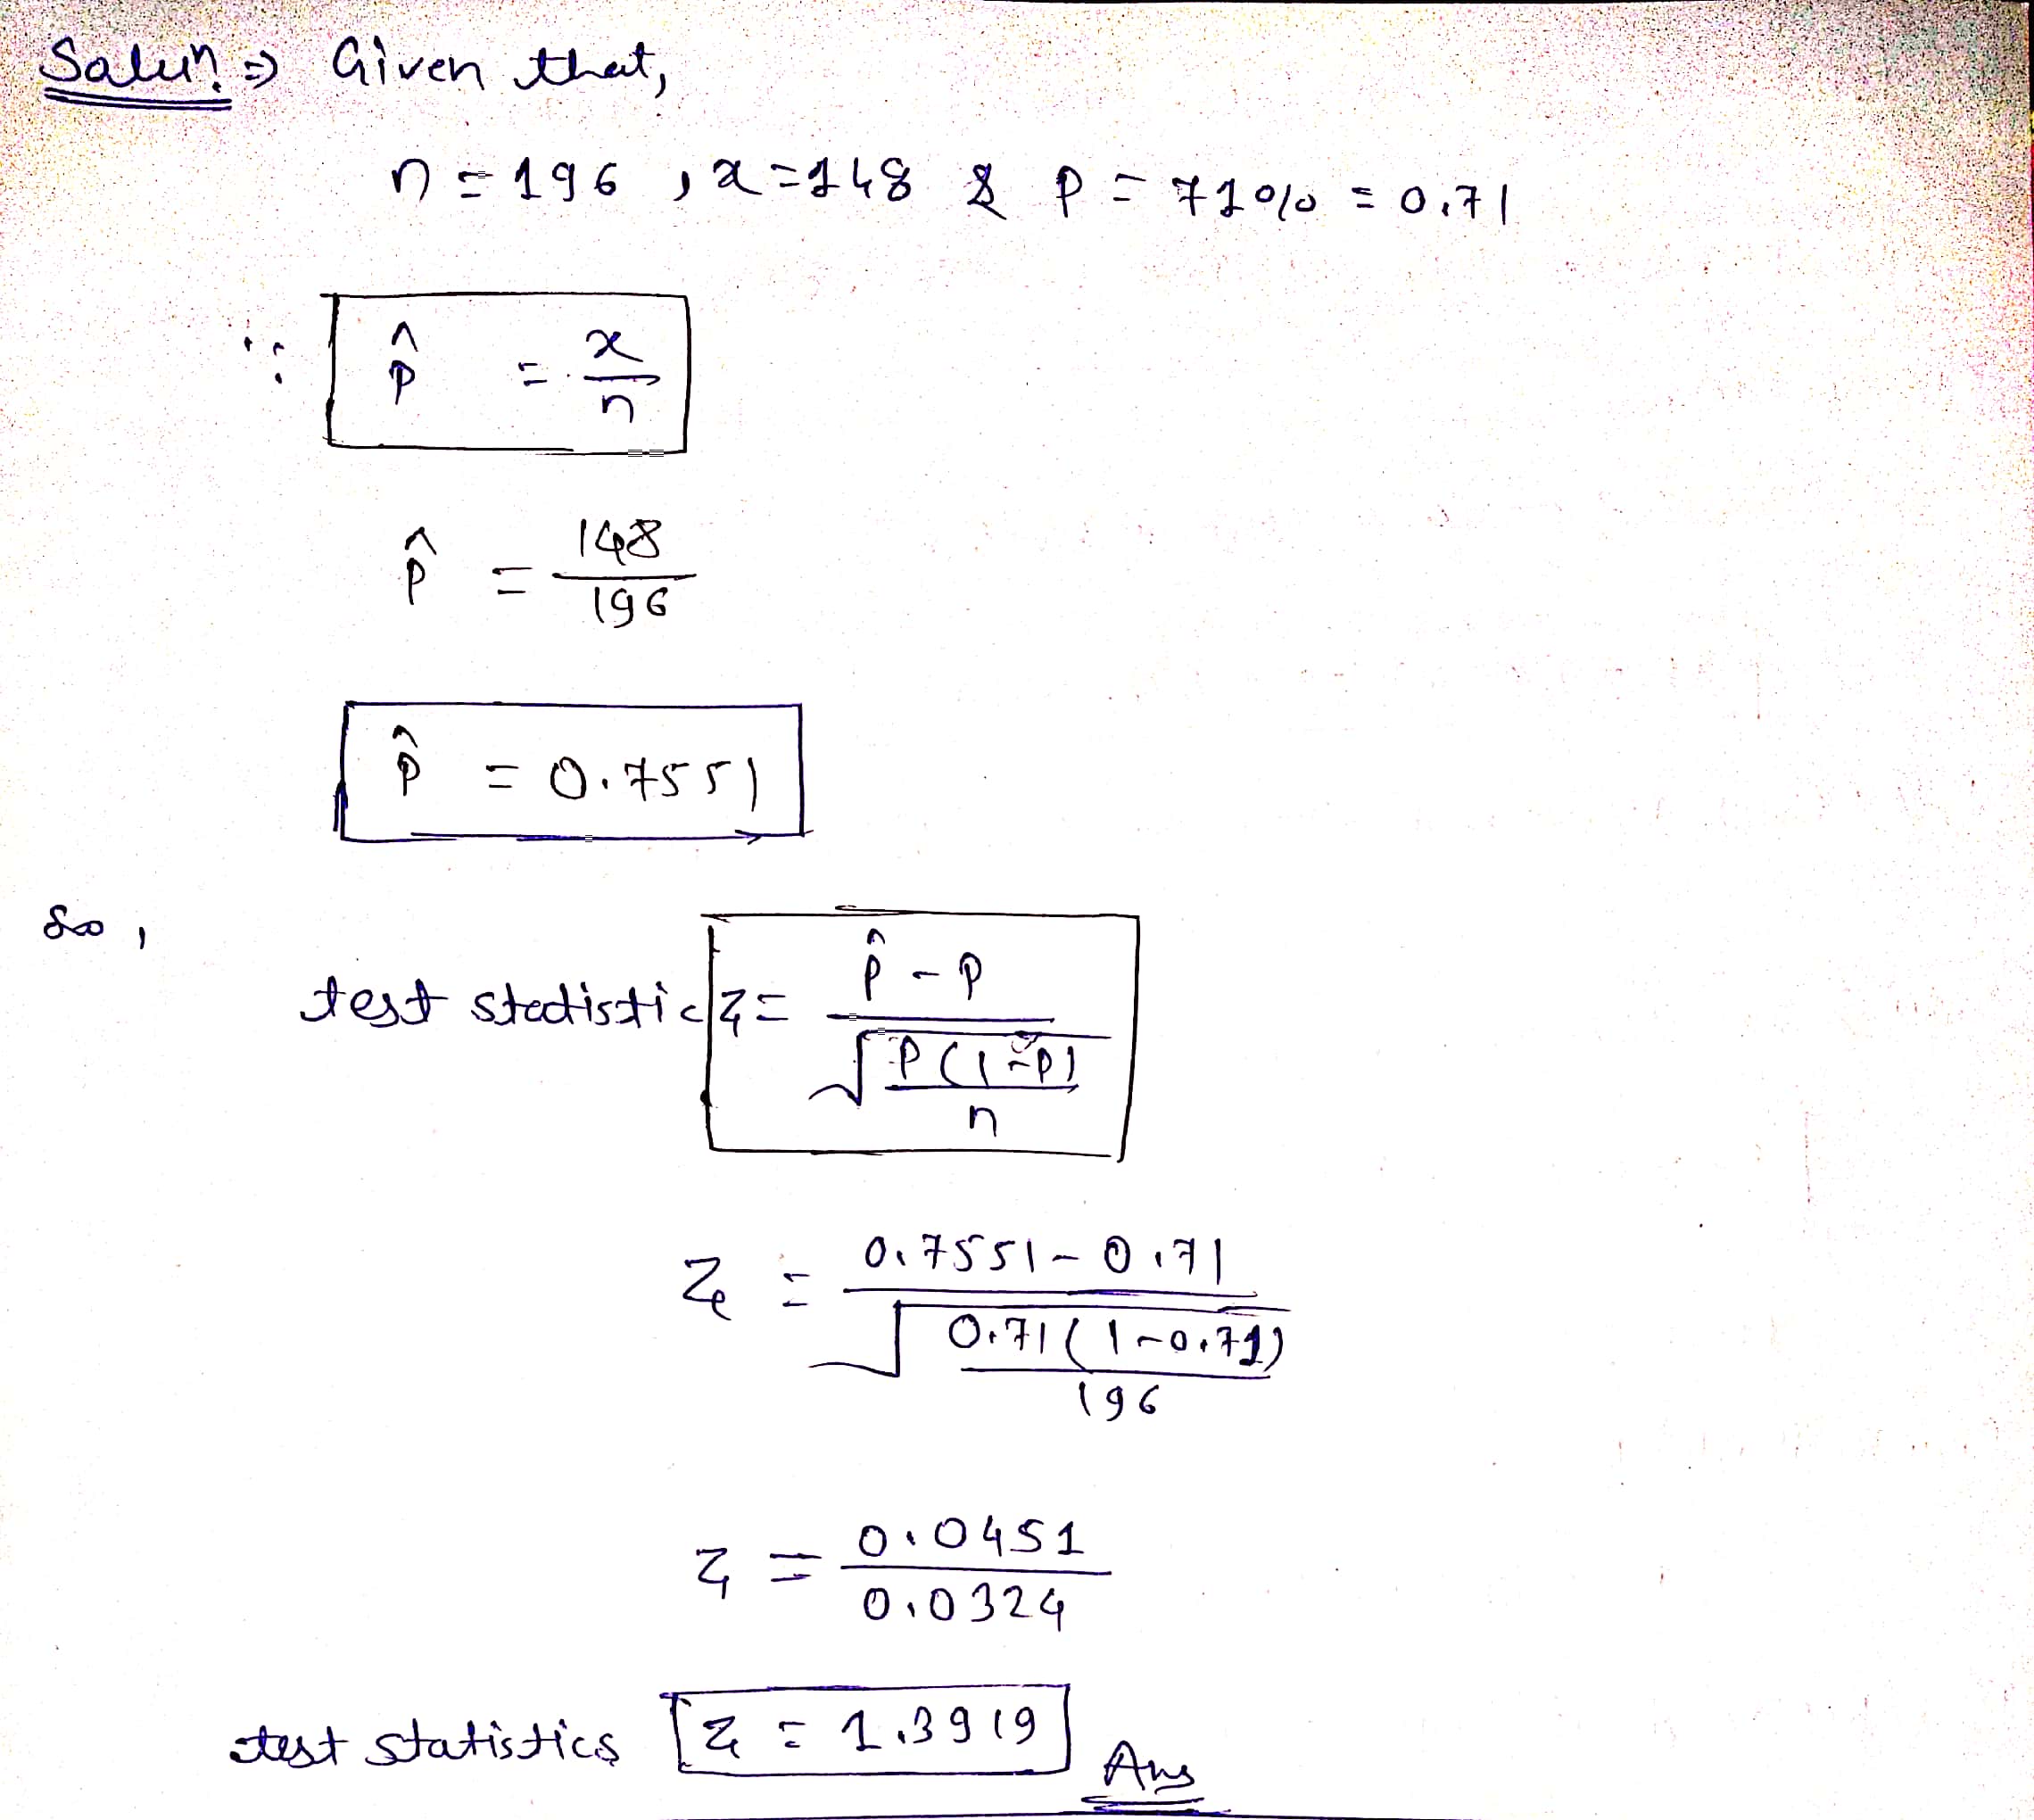 Salun. ⇒ Given that,
n = 196 , x = 148 & P = 71% = 0.71
∵ p̂ = x/n
p̂ = 148/196
p̂ = 0.7551
So,
test statistic Z = (p̂ - P)/√(P(1-P)/n)
Z = (0.7551 - 0.71)/√(0.71(1-0.71)/196)
Z = 0.0451/0.0324
test statistics Z = 1.3919 Ans